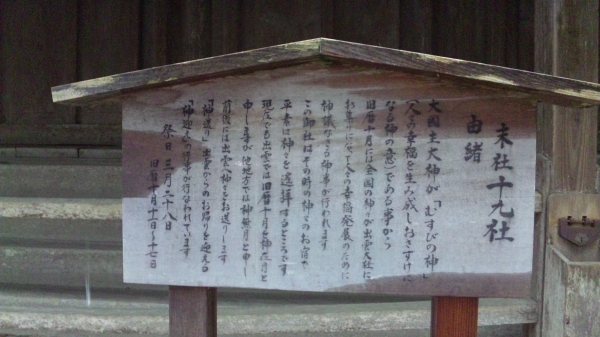 末社十九社
由緒
大国主大神が「むすびの神」
(人々に幸福を生み成しおさずけに
なる神の意)である事から
旧暦十月には全国の神々が出雲大社に
お集りになって人々の幸福発展のために
神議なさる神事が行われます
この御社はその時の神々のお宿で
平素は神々を遥拝するところです
現在でも出雲では旧暦十月を神在月と
申しますが他地方では神無月と申し
前後には出雲へ神々をお送りします
「神送り」出雲からのお帰りを迎える
「神迎え」の行事が行なわれています
祭日 三月二十八日
旧暦十月十一日〜十七日